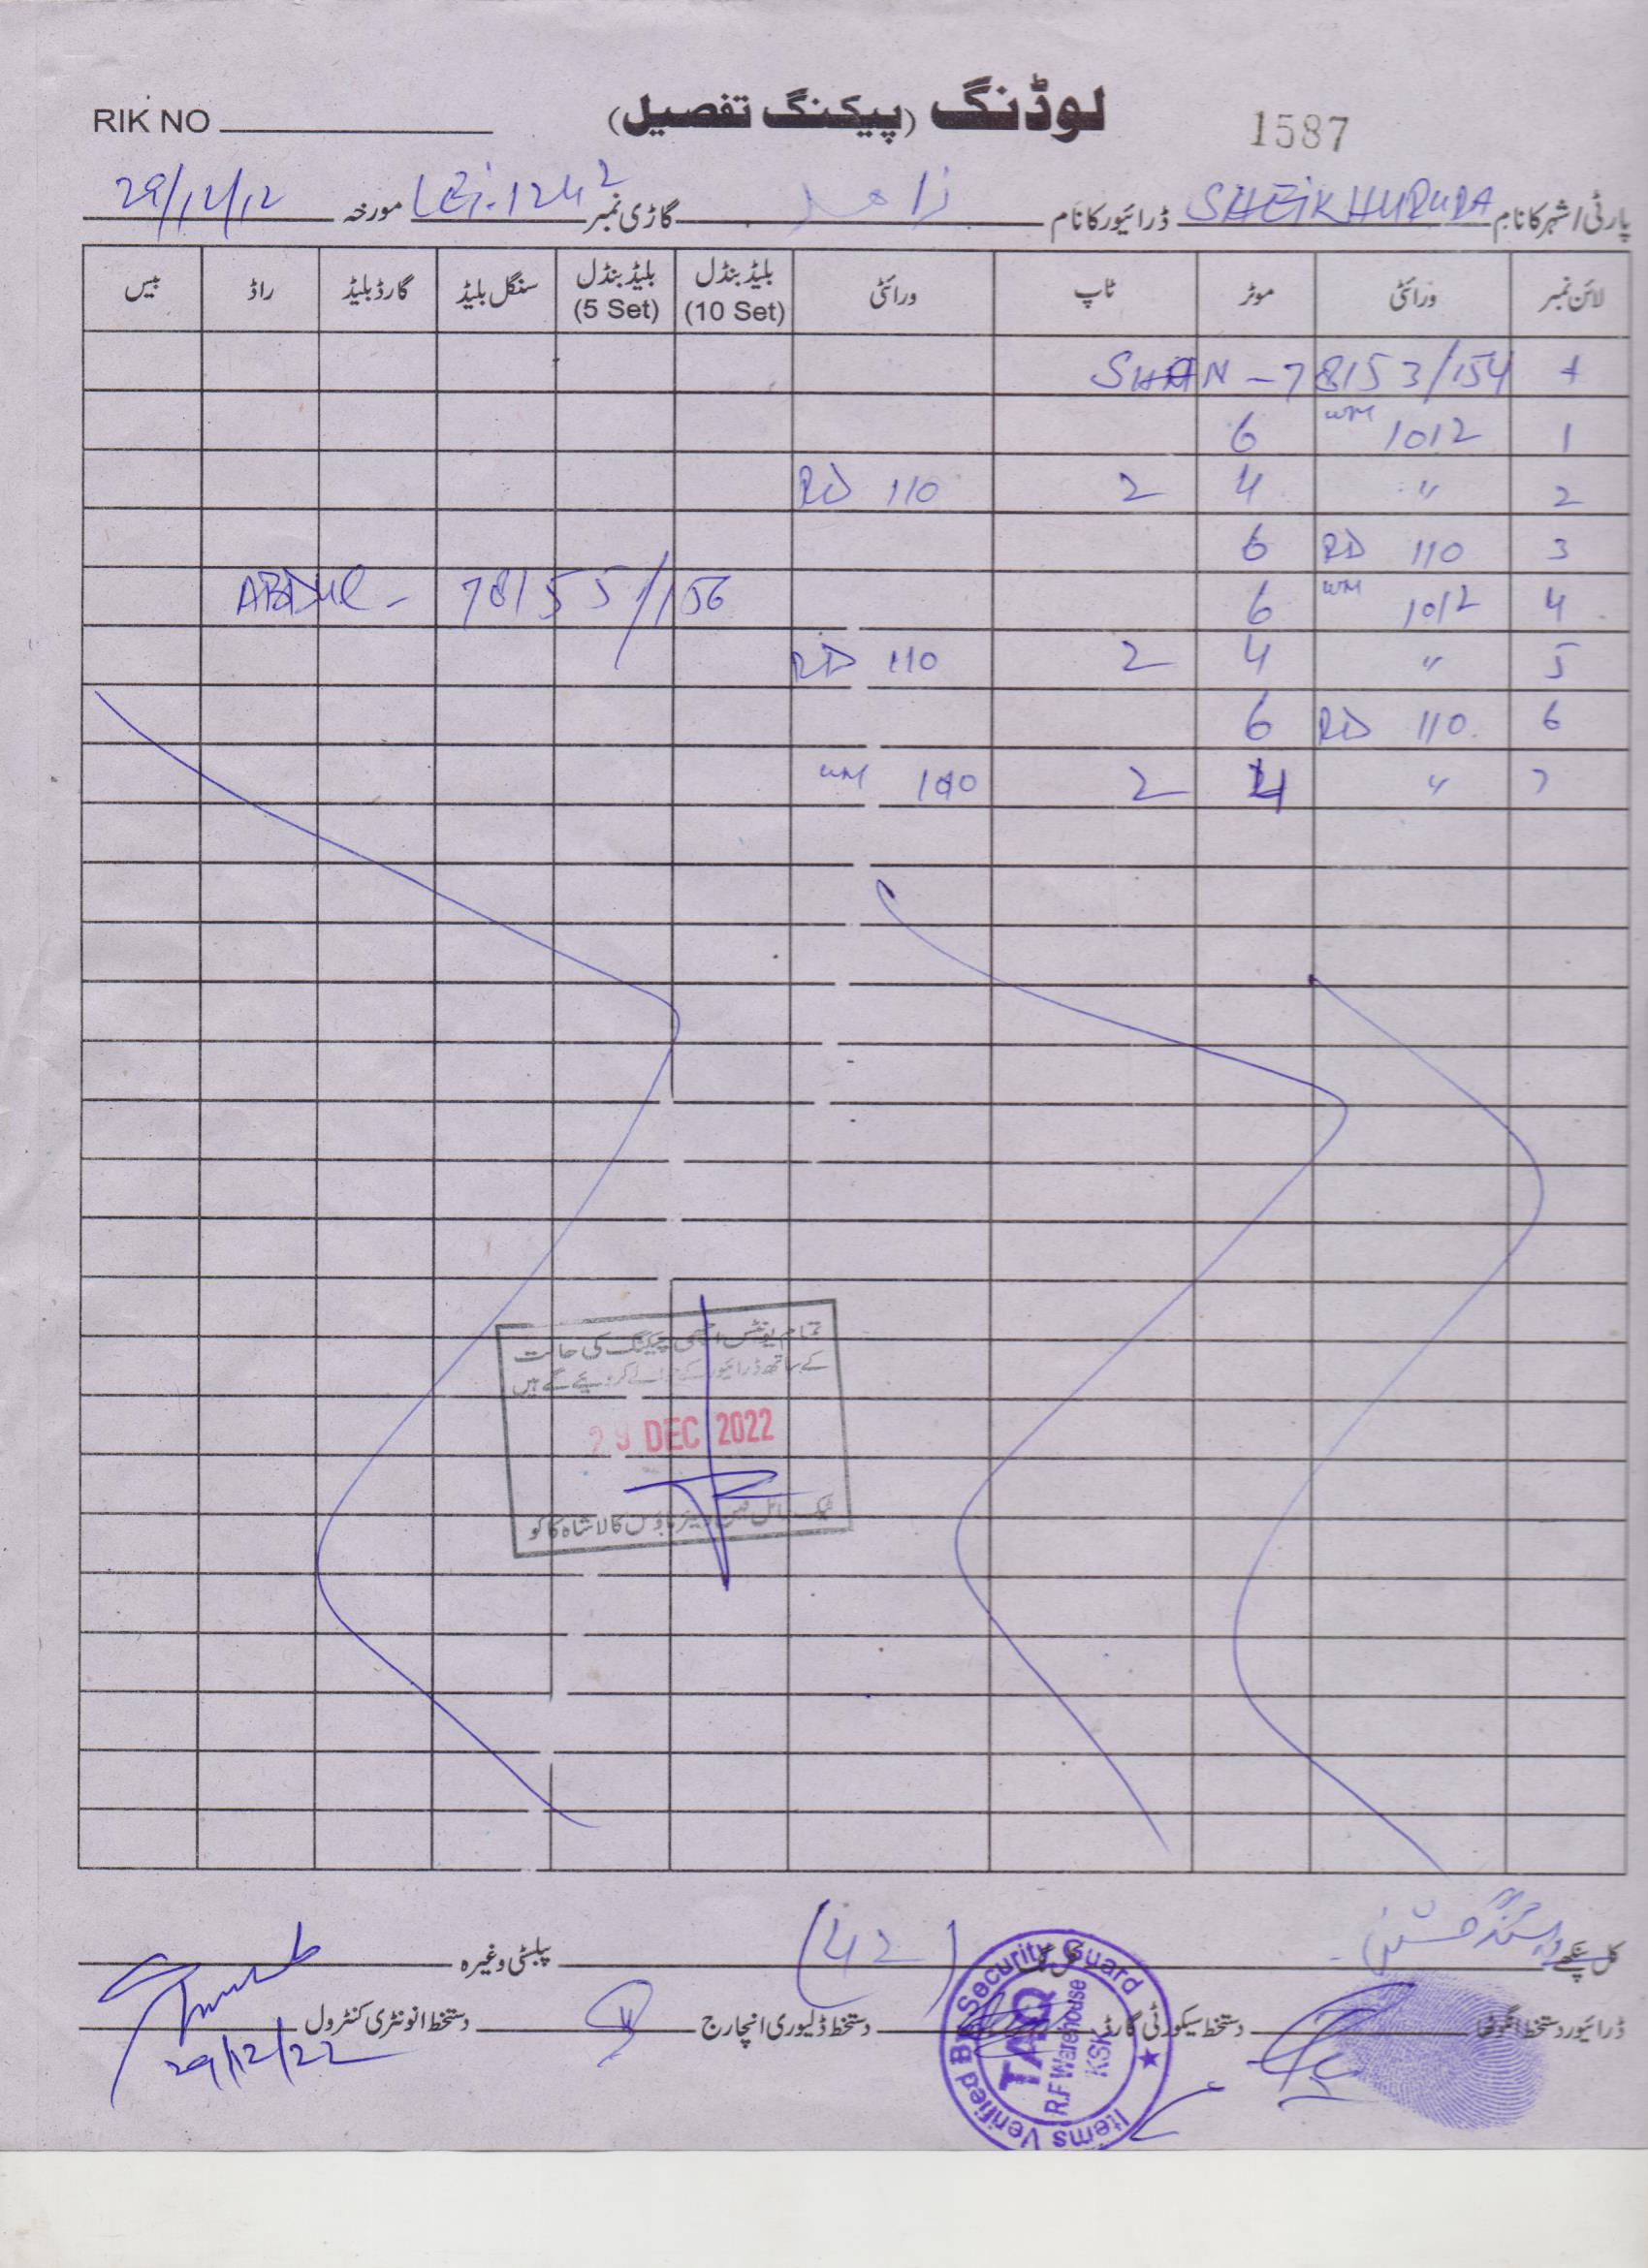 RIK NO
لوڈنگ (پیکنگ تفصیل)
1587
پارٹی/شہر کا نام SHEIKHUPURA ڈرائیور کا نام زاہد گاڑی نمبر LEi-1242 مورخہ 29/12/12
لائن نمبر ورائٹی موٹر ٹاپ ورائٹی بلیڈ بنڈل (10 Set) بلیڈ بنڈل (5 Set) سنگل بلیڈ گارڈ بلیڈ راڈ بیس
SHAN - 78153/154
1 WM 1012 6
2 〃 4 2 RD 110
3 RD 110 6
4 WM 1012 6 ABDUL - 78155/156
5 〃 4 2 RD 110
6 RD 110 6
7 〃 4 2 WM
تمام یونٹس اچھی پیکنگ کی حالت
کے ساتھ ڈرائیور کے حوالے کر دیئے گئے ہیں
29 DEC 2022
وئیر ہاؤس کالا شاہ کاکو
کل پنکھے (42) پبلسٹی وغیرہ
ڈرائیور دستخط انگوٹھا دستخط سیکورٹی گارڈ دستخط ڈلیوری انچارج دستخط انونٹری کنٹرول
29/12/22
Items Verified By Security Guard
R.F Warehouse
KSK